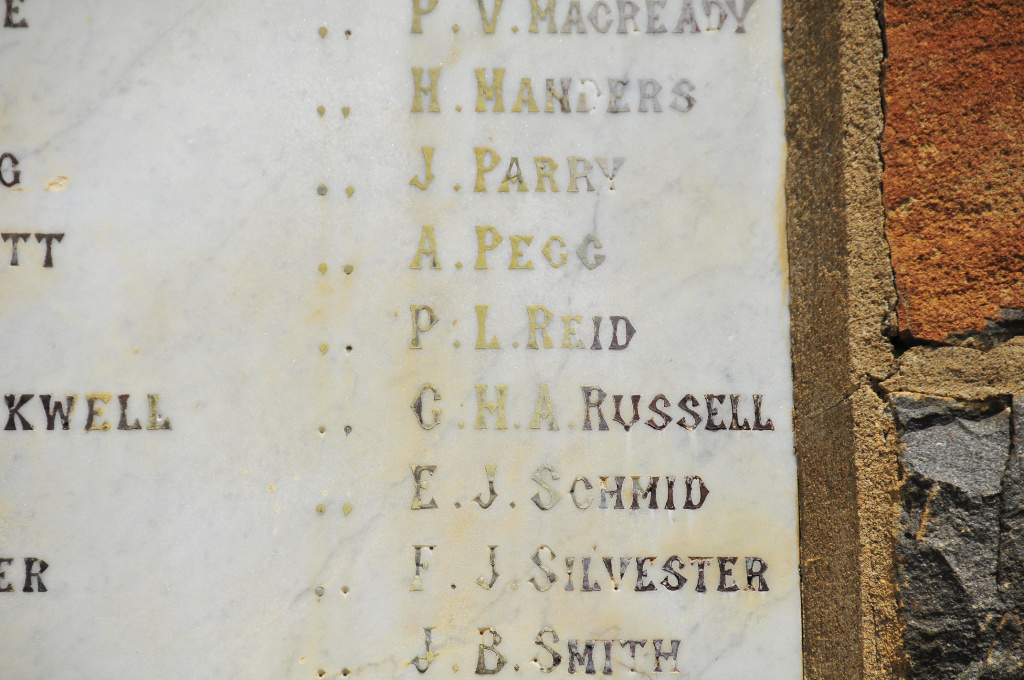 E .. P. V. MACREADY
.. H. MANDERS
G .. J. PARRY
TT .. A. PEGG
.. P. L. REID
KWELL .. G. H. A. RUSSELL
.. E. J. SCHMID
ER .. F. J. SILVESTER
.. J. B. SMITH